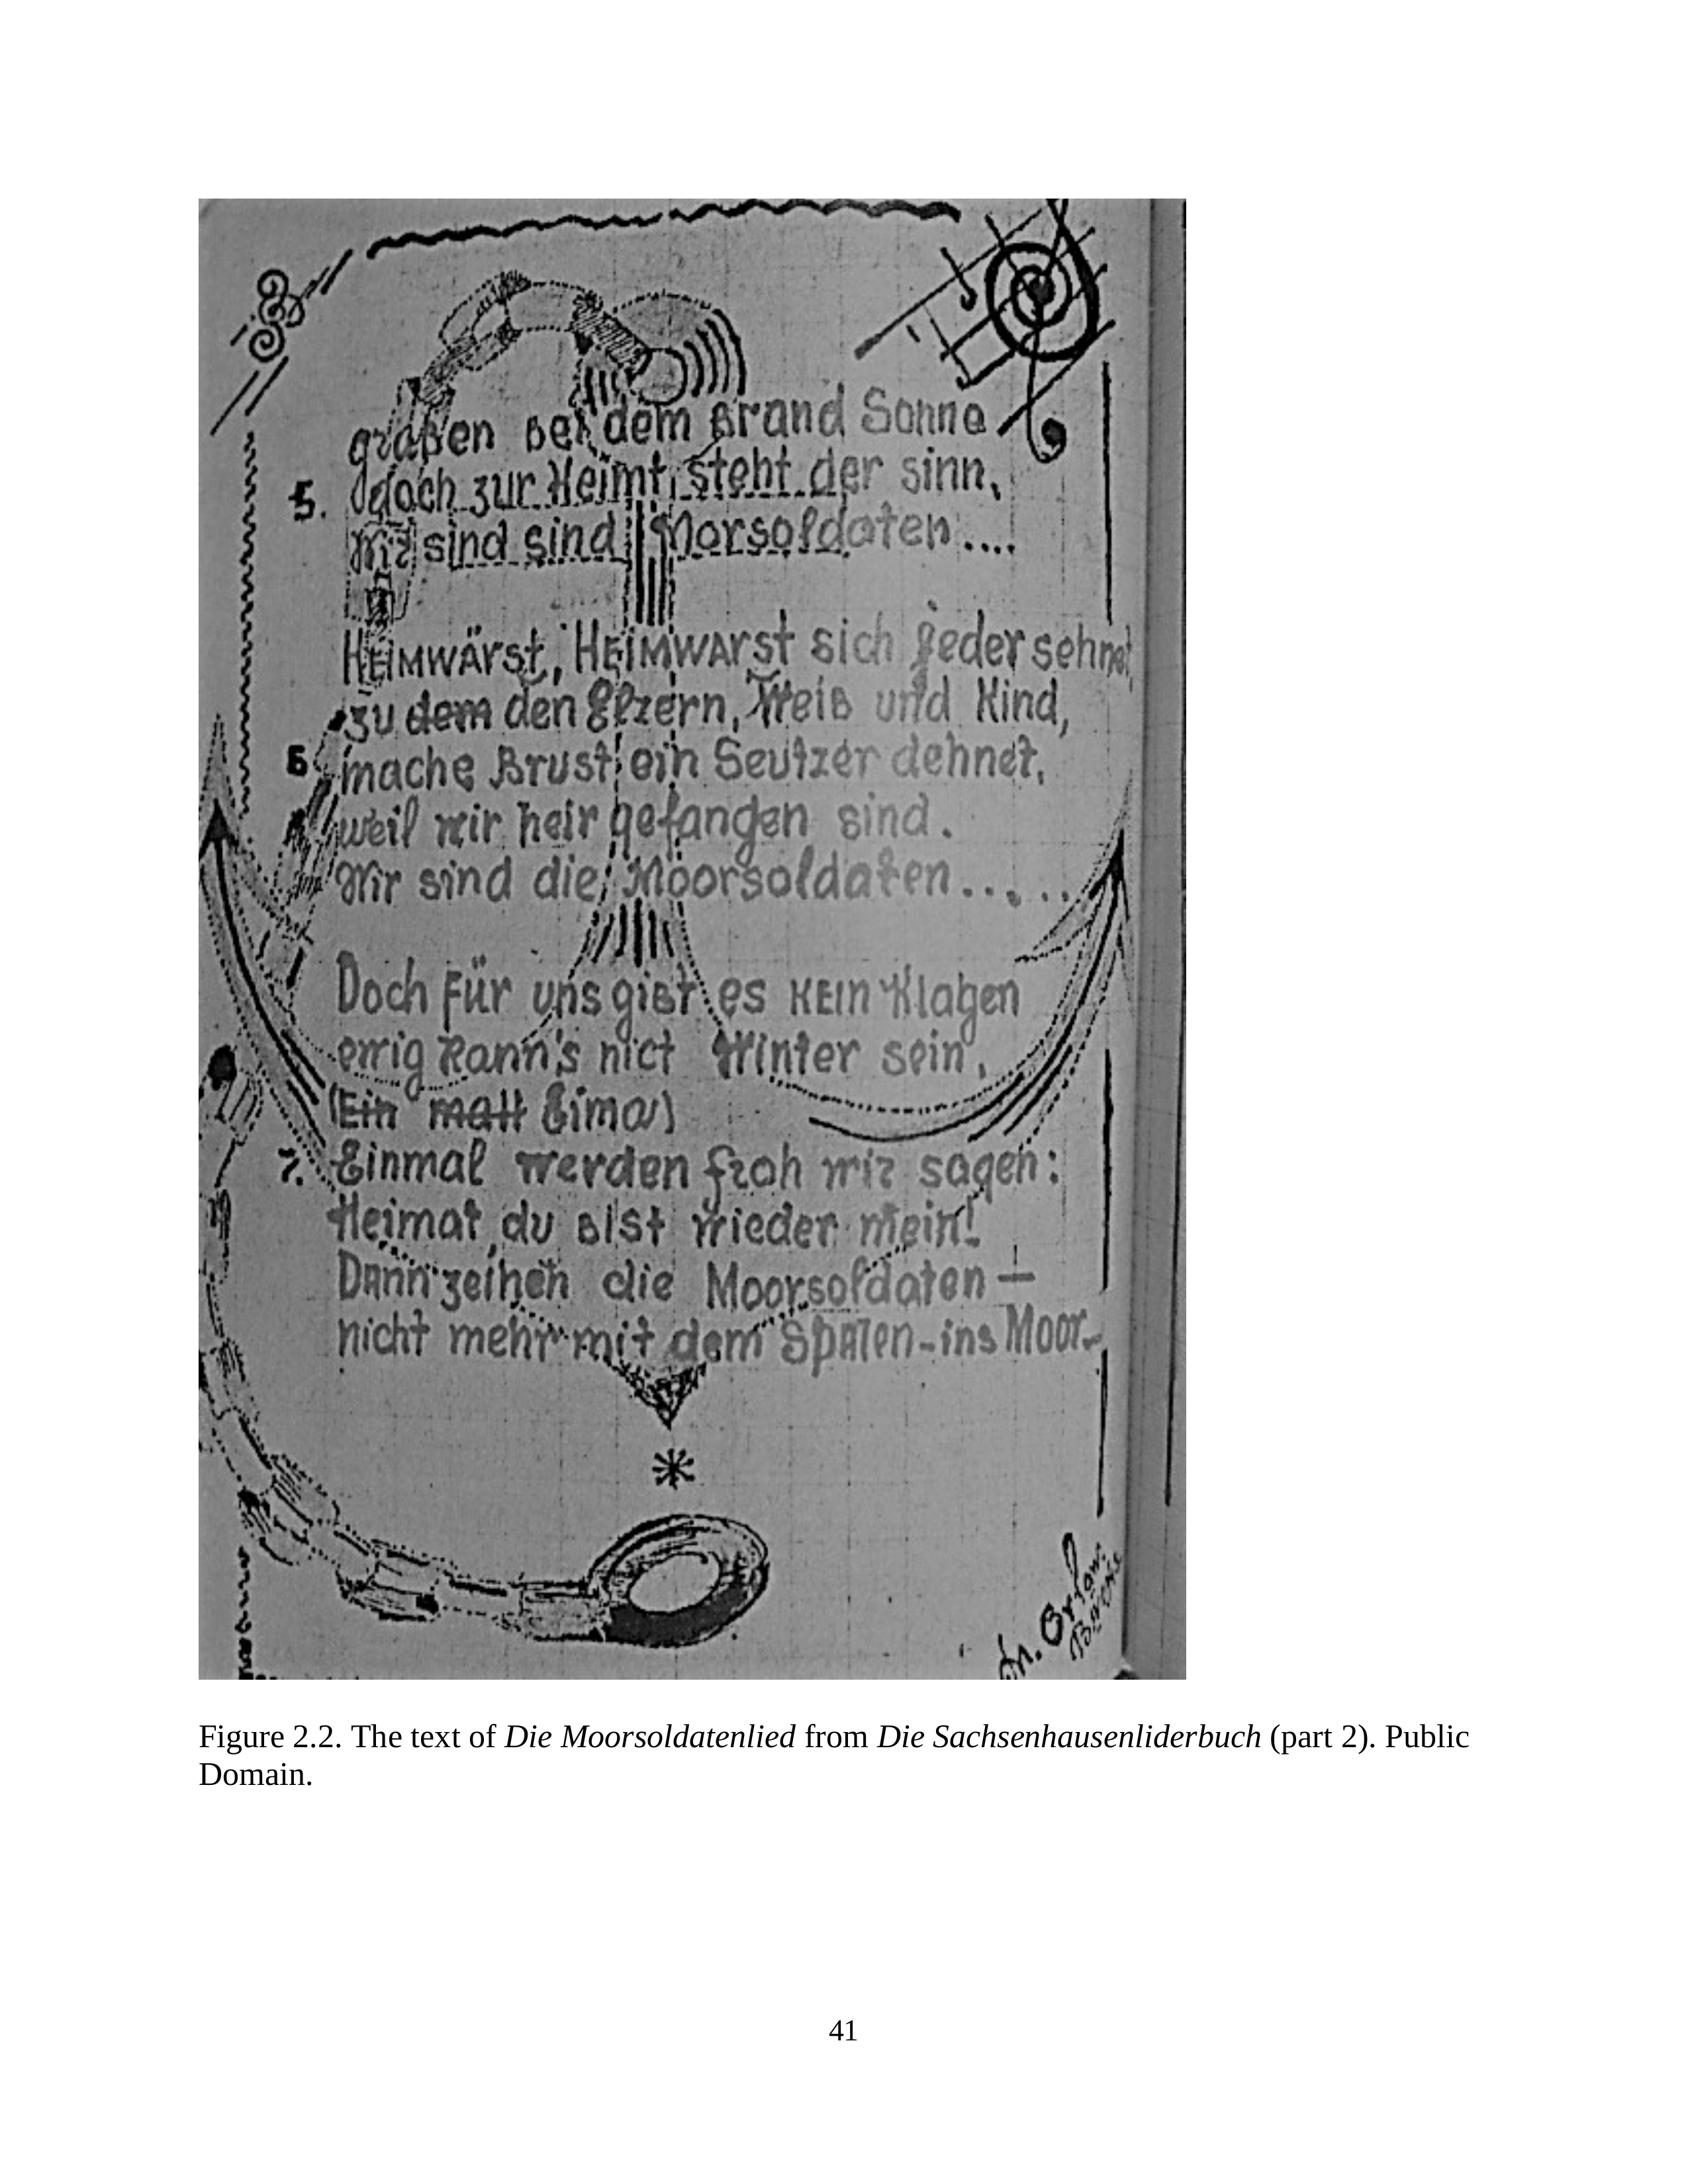 graben bei dem Brand Sonne
5. doch zur Heimt, steht der sinn,
Wir sind sind Morsoldaten....
HEIMWÄrst, HEIMWARst sich jeder sehnet,
zu dem den Eltern, Weib und Kind,
6 mache Brust ein Seutzer dehnet,
weil wir heir gefangen sind.
Wir sind die Moorsoldaten......
Doch Für uns gibt es KEIn Klagen
ewig kann's nict Winter sein,
(Ein matt Eimal)
7. Einmal werden froh wir sagen:
Heimat, du bist wieder mein!
Dann zeihen die Moorsoldaten —
nicht mehr mit dem SpATen-ins Moor-
Figure 2.2. The text of Die Moorsoldatenlied from Die Sachsenhausenliderbuch (part 2). Public
Domain.
41